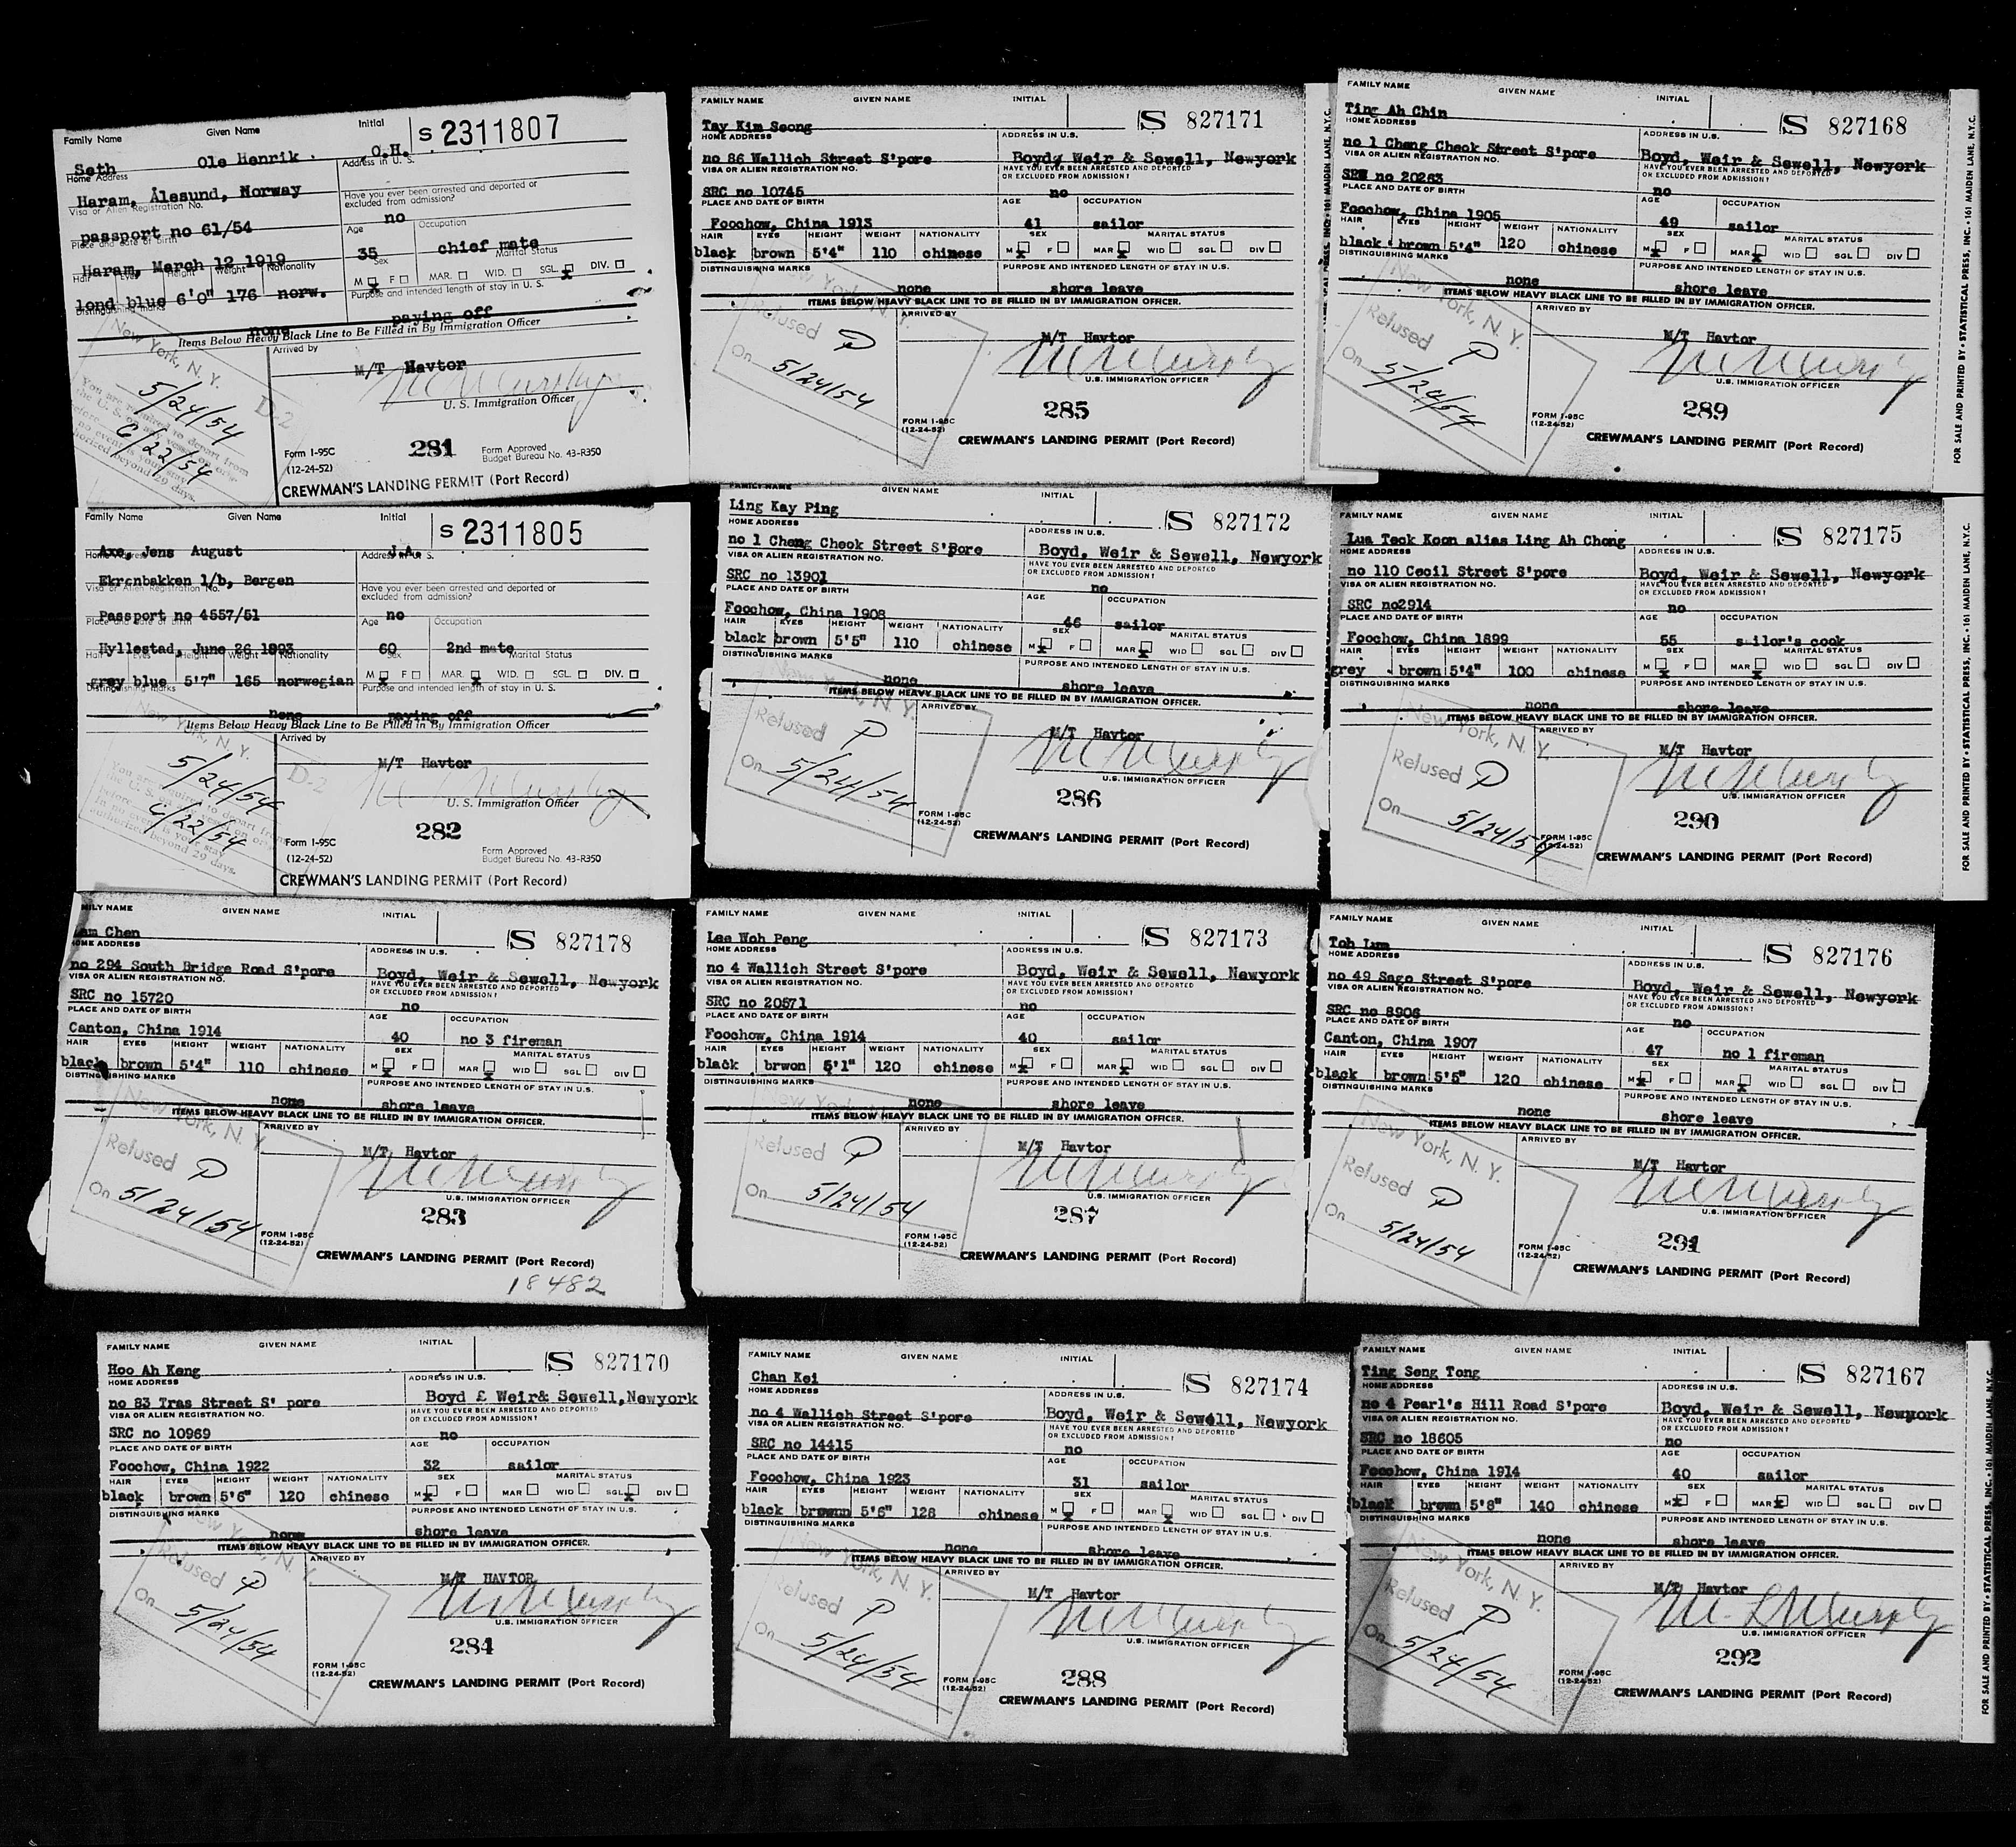 Family Name Given Name Initial S 2311807
Seth Ole Henrik. O.H.
Home Address Address in U. S.
Haram, Ålesund, Norway
Visa or Alien Registration No. Have you ever been arrested and deported or excluded from admission?
passport no 61/54 no
Place and date of birth Age Occupation
Haram, March 12 1919 35 chief mate
Hair Eyes Height Weight Nationality Sex Marital Status
lond blue 6'0" 176 norw. M F MAR. WID. SGL. DIV.
Distinguishing marks Purpose and intended length of stay in U. S.
none paying off
Items Below Heavy Black Line to Be Filled in By Immigration Officer
New York, N. Y. Arrived by
5/24/54 D-2 M/T Havtor
6/22/54 U. S. Immigration Officer
281
Form I-95C (12-24-52) Form Approved Budget Bureau No. 43-R350
CREWMAN'S LANDING PERMIT (Port Record)
Family Name Given Name Initial S 2311805
Axe, Jens August J.A.
Home Address Address in U. S.
Ekrenbakken 1/b, Bergen
Visa or Alien Registration No. Have you ever been arrested and deported or excluded from admission?
Passport no 4557/51 no
Place and date of birth Age Occupation
Hyllestad, June 26 1893 60 2nd mate
Hair Eyes Height Weight Nationality Sex Marital Status
grey blue 5'7" 165 norwegian M F MAR. WID. SGL. DIV.
Distinguishing marks Purpose and intended length of stay in U. S.
none paying off
Items Below Heavy Black Line to Be Filled in By Immigration Officer
New York, N. Y. Arrived by
5/24/54 D-2 M/T Havtor
6/22/54 U. S. Immigration Officer
282
Form I-95C (12-24-52) Form Approved Budget Bureau No. 43-R350
CREWMAN'S LANDING PERMIT (Port Record)
MILY NAME GIVEN NAME INITIAL S 827178
am Chen
HOME ADDRESS ADDRESS IN U.S.
no 294 South Bridge Road S'pore Boyd, Weir & Sewell, Newyork
VISA OR ALIEN REGISTRATION NO. HAVE YOU EVER BEEN ARRESTED AND DEPORTED OR EXCLUDED FROM ADMISSION?
SRC no 15720 no
PLACE AND DATE OF BIRTH AGE OCCUPATION
Canton, China 1914 40 no 3 fireman
HAIR EYES HEIGHT WEIGHT NATIONALITY SEX MARITAL STATUS
black brown 5'4" 110 chinese M F MAR WID SGL DIV
DISTINGUISHING MARKS PURPOSE AND INTENDED LENGTH OF STAY IN U.S.
none shore leave
ITEMS BELOW HEAVY BLACK LINE TO BE FILLED IN BY IMMIGRATION OFFICER.
New York, N. Y. ARRIVED BY
Refused P M/T Havtor
On 5/24/54 U.S. IMMIGRATION OFFICER
283
FORM I-95C (12-24-52)
CREWMAN'S LANDING PERMIT (Port Record)
18482
FAMILY NAME GIVEN NAME INITIAL S 827170
Hoo Ah Keng
HOME ADDRESS ADDRESS IN U.S.
no 83 Tras Street S' pore Boyd £ Weir& Sewell,Newyork
VISA OR ALIEN REGISTRATION NO. HAVE YOU EVER BEEN ARRESTED AND DEPORTED OR EXCLUDED FROM ADMISSION?
SRC no 10969 no
PLACE AND DATE OF BIRTH AGE OCCUPATION
Foochow, China 1922 32 sailor
HAIR EYES HEIGHT WEIGHT NATIONALITY SEX MARITAL STATUS
black brown 5'6" 120 chinese M F MAR WID SGL DIV
DISTINGUISHING MARKS PURPOSE AND INTENDED LENGTH OF STAY IN U.S.
none shore leave
ITEMS BELOW HEAVY BLACK LINE TO BE FILLED IN BY IMMIGRATION OFFICER.
New York, N. Y. ARRIVED BY
Refused P M/T HAVTOR
On 5/24/54 U.S. IMMIGRATION OFFICER
284
FORM I-95C (12-24-52)
CREWMAN'S LANDING PERMIT (Port Record)
FAMILY NAME GIVEN NAME INITIAL S 827171
Tay Kim Seong
HOME ADDRESS ADDRESS IN U.S.
no 86 Wallich Street S'pore Boyd, Weir & Sewell, Newyork
VISA OR ALIEN REGISTRATION NO. HAVE YOU EVER BEEN ARRESTED AND DEPORTED OR EXCLUDED FROM ADMISSION?
SRC no 10745 no
PLACE AND DATE OF BIRTH AGE OCCUPATION
Foochow, China 1913 41 sailor
HAIR EYES HEIGHT WEIGHT NATIONALITY SEX MARITAL STATUS
black brown 5'4" 110 chinese M F MAR WID SGL DIV
DISTINGUISHING MARKS PURPOSE AND INTENDED LENGTH OF STAY IN U.S.
none shore leave
ITEMS BELOW HEAVY BLACK LINE TO BE FILLED IN BY IMMIGRATION OFFICER.
New York, N. Y. ARRIVED BY
Refused P M/T Havtor
On 5/24/54 U.S. IMMIGRATION OFFICER
285
FORM I-95C (12-24-52)
CREWMAN'S LANDING PERMIT (Port Record)
FAMILY NAME GIVEN NAME INITIAL S 827172
Ling Kay Ping
HOME ADDRESS ADDRESS IN U.S.
no 1 Cheng Cheok Street S'Pore Boyd, Weir & Sewell, Newyork
VISA OR ALIEN REGISTRATION NO. HAVE YOU EVER BEEN ARRESTED AND DEPORTED OR EXCLUDED FROM ADMISSION?
SRC no 13901 no
PLACE AND DATE OF BIRTH AGE OCCUPATION
Foochow, China 1908 46 sailor
HAIR EYES HEIGHT WEIGHT NATIONALITY SEX MARITAL STATUS
black brown 5'5" 110 chinese M F MAR WID SGL DIV
DISTINGUISHING MARKS PURPOSE AND INTENDED LENGTH OF STAY IN U.S.
none shore leave
ITEMS BELOW HEAVY BLACK LINE TO BE FILLED IN BY IMMIGRATION OFFICER.
New York, N. Y. ARRIVED BY
Refused P M/T Havtor
On 5/24/54 U.S. IMMIGRATION OFFICER
286
FORM I-95C (12-24-52)
CREWMAN'S LANDING PERMIT (Port Record)
FAMILY NAME GIVEN NAME INITIAL S 827173
Lee Woh Peng
HOME ADDRESS ADDRESS IN U.S.
no 4 Wallich Street S'pore Boyd, Weir & Sewell, Newyork
VISA OR ALIEN REGISTRATION NO. HAVE YOU EVER BEEN ARRESTED AND DEPORTED OR EXCLUDED FROM ADMISSION?
SRC no 20571 no
PLACE AND DATE OF BIRTH AGE OCCUPATION
Foochow, China 1914 40 sailor
HAIR EYES HEIGHT WEIGHT NATIONALITY SEX MARITAL STATUS
black brwon 5'1" 120 chinese M F MAR WID SGL DIV
DISTINGUISHING MARKS PURPOSE AND INTENDED LENGTH OF STAY IN U.S.
none shore leave
ITEMS BELOW HEAVY BLACK LINE TO BE FILLED IN BY IMMIGRATION OFFICER.
New York ARRIVED BY
Refused P M/T Havtor
On 5/24/54 U.S. IMMIGRATION OFFICER
287
FORM I-95C (12-24-52)
CREWMAN'S LANDING PERMIT (Port Record)
FAMILY NAME GIVEN NAME INITIAL S 827174
Chan Kei
HOME ADDRESS ADDRESS IN U.S.
no 4 Wallich Street S'pore Boyd, Weir & Sewell, Newyork
VISA OR ALIEN REGISTRATION NO. HAVE YOU EVER BEEN ARRESTED AND DEPORTED OR EXCLUDED FROM ADMISSION?
SRC no 14415 no
PLACE AND DATE OF BIRTH AGE OCCUPATION
Foochow, China 1923 31 sailor
HAIR EYES HEIGHT WEIGHT NATIONALITY SEX MARITAL STATUS
black brownn 5'6" 128 chinese M F MAR WID SGL DIV
DISTINGUISHING MARKS PURPOSE AND INTENDED LENGTH OF STAY IN U.S.
none shore leave
ITEMS BELOW HEAVY BLACK LINE TO BE FILLED IN BY IMMIGRATION OFFICER.
New York, N. Y. ARRIVED BY
Refused P M/T Havtor
On 5/24/54 U.S. IMMIGRATION OFFICER
288
FORM I-95C (12-24-52)
CREWMAN'S LANDING PERMIT (Port Record)
FAMILY NAME GIVEN NAME INITIAL S 827168
Ting Ah Chin
HOME ADDRESS ADDRESS IN U.S.
no 1 Cheng Cheok Street S'pore Boyd, Weir & Sewell, Newyork
VISA OR ALIEN REGISTRATION NO. HAVE YOU EVER BEEN ARRESTED AND DEPORTED OR EXCLUDED FROM ADMISSION?
no 20263 no
PLACE AND DATE OF BIRTH AGE OCCUPATION
Foochow, China 1905 49 sailor
HAIR EYES HEIGHT WEIGHT NATIONALITY SEX MARITAL STATUS
black brown 5'4" 120 chinese M F MAR WID SGL DIV
DISTINGUISHING MARKS PURPOSE AND INTENDED LENGTH OF STAY IN U.S.
none shore leave
ITEMS BELOW HEAVY BLACK LINE TO BE FILLED IN BY IMMIGRATION OFFICER.
New York, N. Y. ARRIVED BY
Refused P M/T Havtor
On 5/24/54 U.S. IMMIGRATION OFFICER
289
FORM I-95C (12-24-52)
CREWMAN'S LANDING PERMIT (Port Record)
FOR SALE AND PRINTED BY • STATISTICAL PRESS, INC. • 161 MAIDEN LANE, N.Y.C.
FAMILY NAME GIVEN NAME INITIAL S 827175
Lua Teck Koon alias Ling Ah Chong
HOME ADDRESS ADDRESS IN U.S.
no 110 Cecil Street S'pore Boyd, Weir & Sewell, Newyork
VISA OR ALIEN REGISTRATION NO. HAVE YOU EVER BEEN ARRESTED AND DEPORTED OR EXCLUDED FROM ADMISSION?
SRC no2914 no
PLACE AND DATE OF BIRTH AGE OCCUPATION
Foochow, China 1899 55 sailor's cook
HAIR EYES HEIGHT WEIGHT NATIONALITY SEX MARITAL STATUS
grey brown 5'4" 100 chinese M F MAR WID SGL DIV
DISTINGUISHING MARKS PURPOSE AND INTENDED LENGTH OF STAY IN U.S.
none shore leave
ITEMS BELOW HEAVY BLACK LINE TO BE FILLED IN BY IMMIGRATION OFFICER.
New York, N. Y. ARRIVED BY
Refused P M/T Havtor
On 5/24/54 U.S. IMMIGRATION OFFICER
290
FORM I-95C (12-24-52)
CREWMAN'S LANDING PERMIT (Port Record)
FOR SALE AND PRINTED BY • STATISTICAL PRESS, INC. • 161 MAIDEN LANE, N.Y.C.
FAMILY NAME GIVEN NAME INITIAL S 827176
Toh Lum
HOME ADDRESS ADDRESS IN U.S.
no 49 Sago Street S'pore Boyd, Weir & Sewell, Newyork
VISA OR ALIEN REGISTRATION NO. HAVE YOU EVER BEEN ARRESTED AND DEPORTED OR EXCLUDED FROM ADMISSION?
SRC no 8906 no
PLACE AND DATE OF BIRTH AGE OCCUPATION
Canton, China 1907 47 no 1 fireman
HAIR EYES HEIGHT WEIGHT NATIONALITY SEX MARITAL STATUS
black brown 5'5" 120 chinese M F MAR WID SGL DIV
DISTINGUISHING MARKS PURPOSE AND INTENDED LENGTH OF STAY IN U.S.
none shore leave
ITEMS BELOW HEAVY BLACK LINE TO BE FILLED IN BY IMMIGRATION OFFICER.
New York, N. Y. ARRIVED BY
Refused P M/T Havtor
On 5/24/54 U.S. IMMIGRATION OFFICER
291
FORM I-95C (12-24-52)
CREWMAN'S LANDING PERMIT (Port Record)
FAMILY NAME GIVEN NAME INITIAL S 827167
Ting Seng Tong
HOME ADDRESS ADDRESS IN U.S.
no 4 Pearl's Hill Road S'pore Boyd, Weir & Sewell, Newyork
VISA OR ALIEN REGISTRATION NO. HAVE YOU EVER BEEN ARRESTED AND DEPORTED OR EXCLUDED FROM ADMISSION?
SRC no 18605 no
PLACE AND DATE OF BIRTH AGE OCCUPATION
Foochow, China 1914 40 sailor
HAIR EYES HEIGHT WEIGHT NATIONALITY SEX MARITAL STATUS
black brown 5'8" 140 chinese M F MAR WID SGL DIV
DISTINGUISHING MARKS PURPOSE AND INTENDED LENGTH OF STAY IN U.S.
none shore leave
ITEMS BELOW HEAVY BLACK LINE TO BE FILLED IN BY IMMIGRATION OFFICER.
New York, N. Y. ARRIVED BY
Refused P M/T Havtor
On 5/24/54 U.S. IMMIGRATION OFFICER
292
FORM I-95C (12-24-52)
CREWMAN'S LANDING PERMIT (Port Record)
FOR SALE AND PRINTED BY • STATISTICAL PRESS, INC. • 161 MAIDEN LANE, N.Y.C.